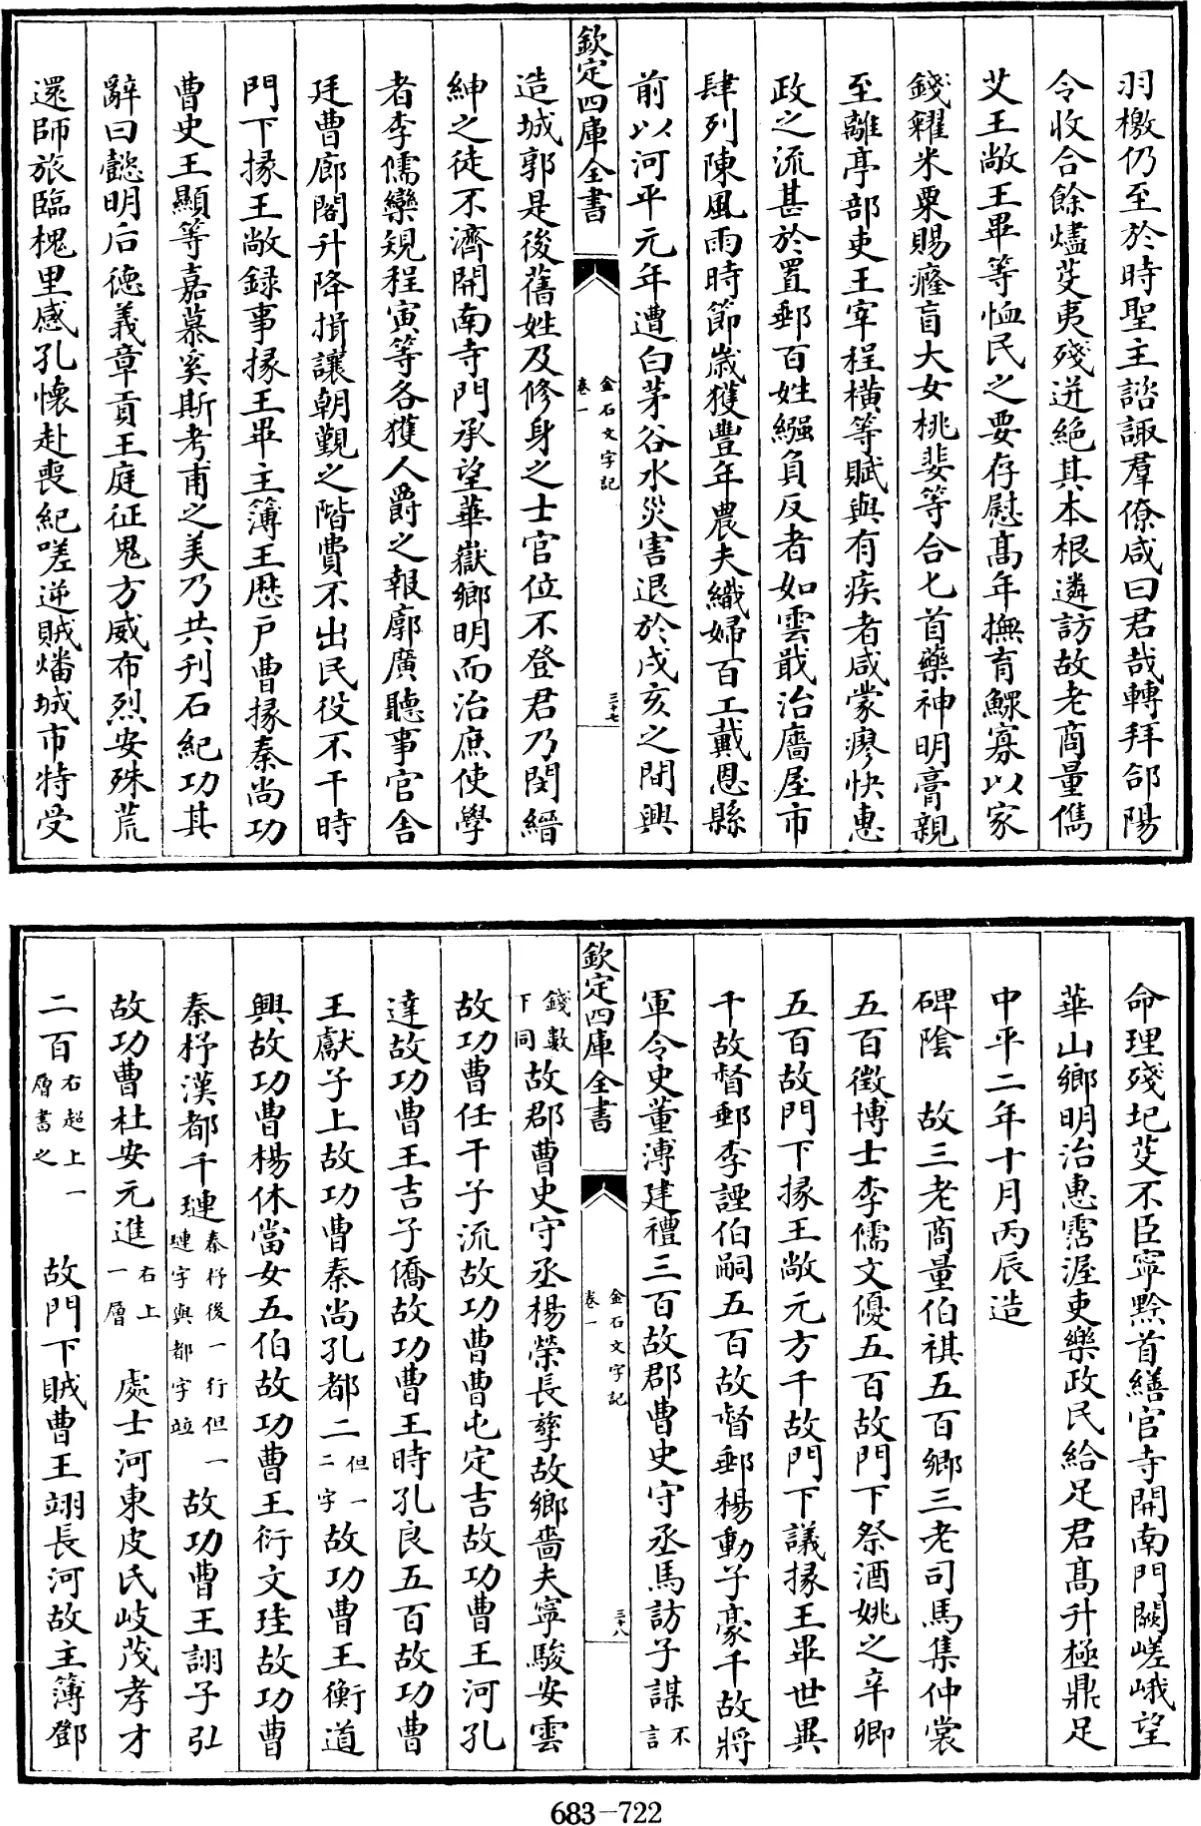 羽檄仍至於時聖主諮諏羣僚咸曰君哉轉拜郃陽
令收合餘燼芟夷殘迸絶其本根遂訪故老商量儁
艾王敞王畢等恤民之要存慰髙年撫育鰥寡以家
錢糴米粟賜癃盲大女桃婓等合七首藥神明膏親
至離亭部吏王宰程橫等賦與有疾者咸蒙瘳快惠
政之流甚於置郵百姓繦負反者如雲戢治廧屋市
肆列陳風雨時節嵗獲豐年農夫織婦百工戴恩縣
前以河平元年遭白茅谷水災害退於戌亥之間興
欽定四庫全書
金石文字記
卷一
三十七
造城郭是後舊姓及修身之士官位不登君乃閔縉
紳之徒不濟開南寺門承望華嶽鄉明而治庶使學
者李儒欒規程寅等各獲人爵之報廓廣聽事官舍
廷曹廊閣升降揖讓朝覲之階費不出民役不干時
門下掾王敞録事掾王畢主簿王歴户曹掾秦尚功
曹史王顯等嘉慕奚斯考甫之美乃共刋石紀功其
辭曰懿明后德義章貢王庭征鬼方威布烈安殊荒
還師旅臨槐里感孔懷赴喪紀嗟逆賊燔城市特受
命理殘圮芟不臣寜黔首繕官寺開南門闕嵯峨望
華山鄉明治惠霑渥吏樂政民給足君髙升極鼎足
中平二年十月丙辰造
碑隂　故三老商量伯祺五百鄉三老司馬集仲裳
五百徵博士李儒文優五百故門下祭酒姚之辛卿
五百故門下掾王敞元方千故門下議掾王畢世異
千故督郵李諲伯嗣五百故督郵楊動子豪千故將
軍令史董溥建禮三百故郡曹史守丞馬訪子謀不言
欽定四庫全書
金石文字記
卷一
三十八
錢數下同故郡曹史守丞楊榮長孳故鄉嗇夫寜駿安雲
故功曹任干子流故功曹曹屯定吉故功曹王河孔
達故功曹王吉子僑故功曹王時孔良五百故功曹
王獻子上故功曹秦尚孔都二但一二字故功曹王衡道
興故功曹楊休當女五伯故功曹王衍文珪故功曹
秦杼漢都千㻌秦杼後一行但一㻌字與都字竝故功曹王詡子弘
故功曹杜安元進右上一層　處士河東皮氏岐茂孝才
二百右超上一層書之　故門下賊曹王翊長河故主簿鄧
683-722